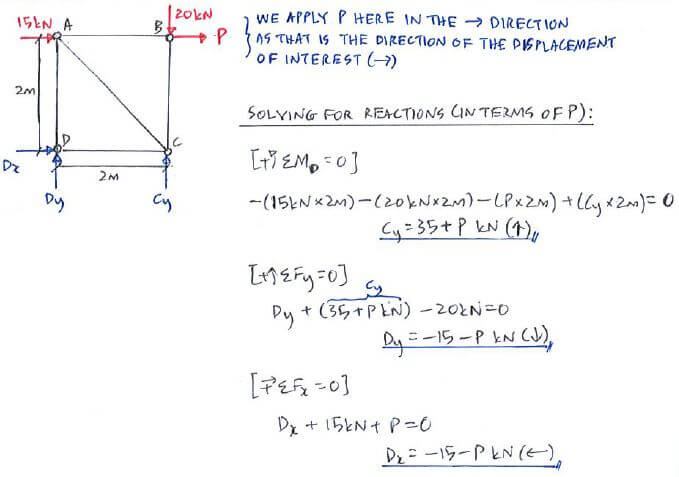 15kN
A
B
20kN
P
2M
D
C
Dx
2M
Dy
Cy
WE APPLY P HERE IN THE → DIRECTION
AS THAT IS THE DIRECTION OF THE DISPLACEMENT
OF INTEREST (→)
SOLVING FOR REACTIONS (IN TERMS OF P):
[+↺ ΣM_D = 0]
-(15kN×2M)-(20kN×2M)-(P×2M)+(Cy×2M)=0
Cy=35+P kN (↑)
[+↑ΣFy=0]
Cy
Dy + (35+P kN) - 20kN=0
Dy = -15 - P kN (↓)
[→+ ΣFx = 0]
Dx + 15kN + P = 0
Dx = -15-P kN (←)